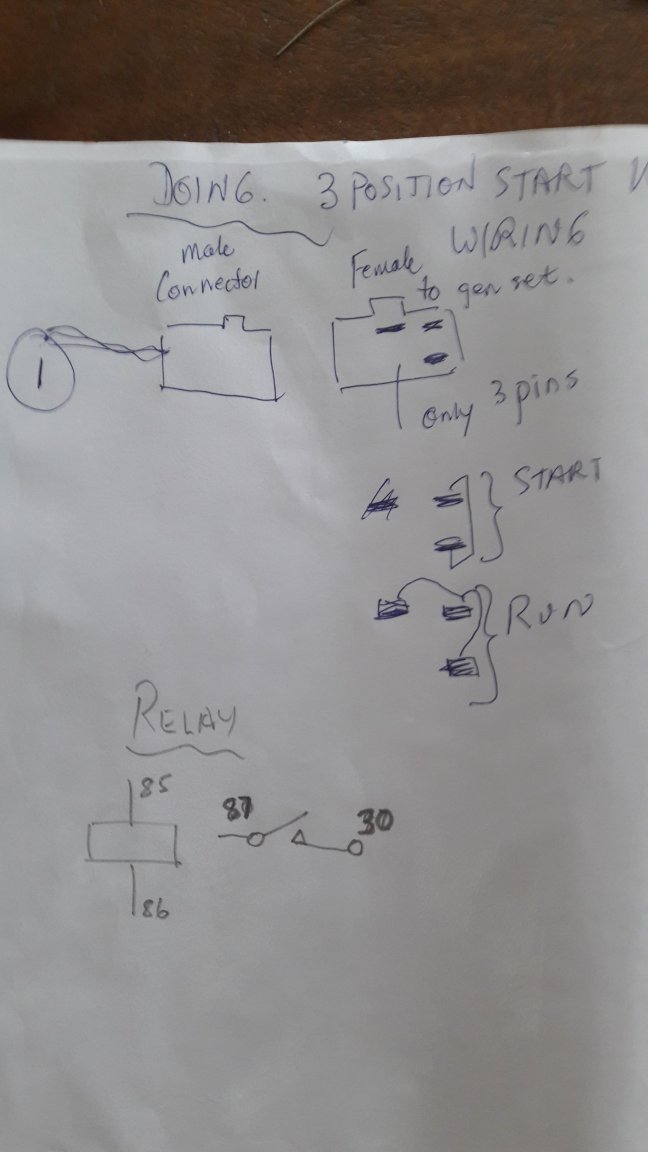 DOING. 3 POSITION START
WIRING
male
Connector
Female
to gen set.
1
only 3 pins
START
RUN
RELAY
85
87
30
86